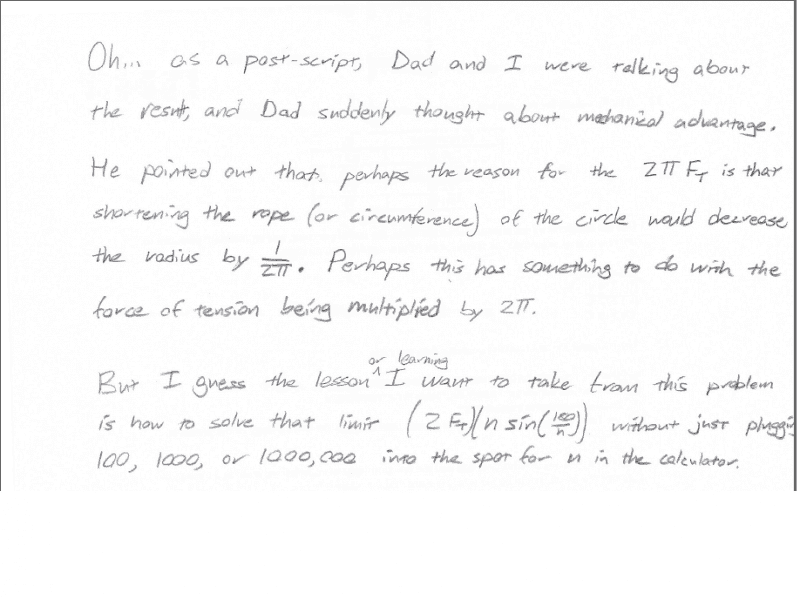 Oh... as a post-script, Dad and I were talking about
the result, and Dad suddenly thought about mechanical advantage.
He pointed out that, perhaps the reason for the 2π F_T is that
shortening the rope (or circumference) of the circle would decrease
the radius by 1/2π. Perhaps this has something to do with the
force of tension being multiplied by 2π.
But I guess the lesson ^or learning I want to take from this problem
is how to solve that limit (2 F_T)(n sin(180/n)) without just pluggi
100, 1000, or 1000,000 into the spot for n in the calculator.